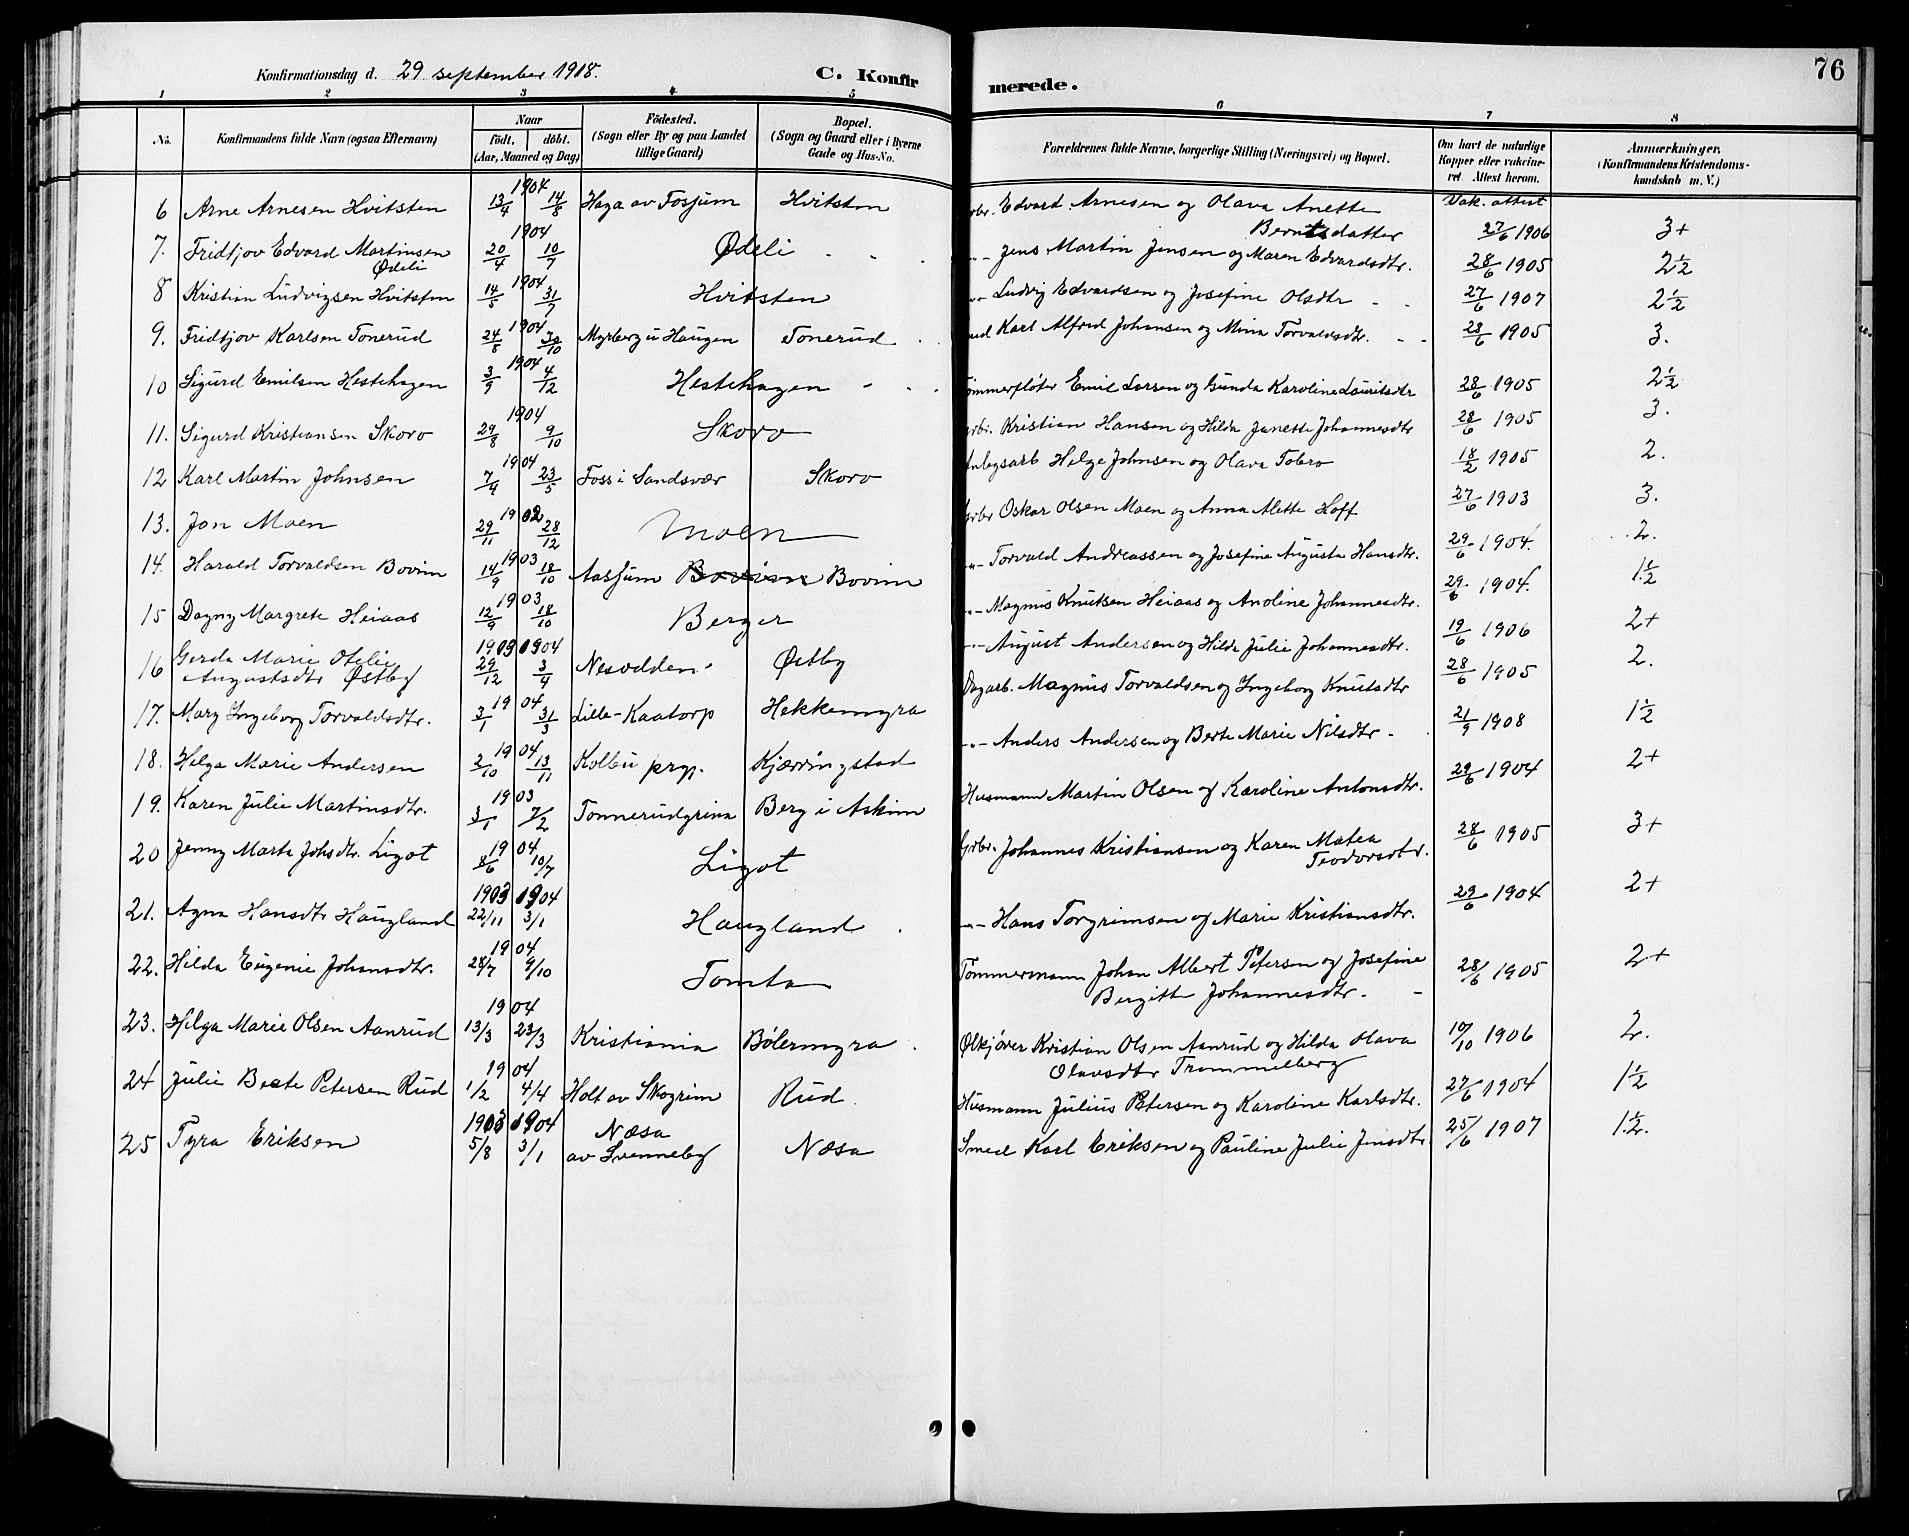 Konfirmationsdag d. 29 september 1918.
C. Konfir
merede.
76
1 2 3 4 5 6 7 8
No.
Konfirmandens fulde Navn (ogsaa Efternavn)
Naar
födt. döbt.
(Aar, Maaned og Dag)
Födested.
(Sogn eller By og paa Landet
tillige Gaard)
Bopæl.
(Sogn og Gaard eller i Byerne
Gade og Hus-No.
Forældrenes fulde Navne, borgerlige Stilling (Næringsvei) og Bopæl.
Om havt de naturlige
Kopper eller vakcine-
ret. Attest herom.
Anmærkninger.
(Konfirmandens Kristendoms-
kundskab m. V.)
Vak. attest
6 Arne Arnesen Hvitsten 1904 13/4 14/8 Haga av Fosjum Hvitsten Edvard Arnesen og Olava Anette
Berntsdatter 27/6 1906 3+
7. Fridtjov Edvard Martinsen 1904 20/4 10/7 Ødeli Jens Martin Jensen og Maren Edvardsdtr. 28/6 1905 2½
Ødeli
8 Kristian Ludvigsen Hvitsten 1904 14/5 31/7 Hvitsten Ludvig Edvardsen og Josefine Olsdtr 27/6 1907 2½
9. Fridtjov Karlsen Tonerud 1904 24/8 30/10 Myrberg u Haugen Tonerud Karl Alfred Johansen og Mina Torvaldsdtr. 28/6 1905 3.
10 Sigurd Emilsen Hestehagen 1904 3/9 4/12 Hestehagen Tømmerfløter Emil Larsen og Gunda Karoline Lauritsdtr 28/6 1905 2½
11. Sigurd Kristiansen Skoro 1904 29/8 9/10 Skoro Kristian Hansen og Hilda Janette Johannesdtr 28/6 1905 3.
12 Karl Martin Johnsen 1904 7/4 23/5 Foss i Sandsvær Skoro Anlegsarb Helge Johnsen og Olava Tobro 18/2 1905 2.
13. Jon Moen 1902 29/11 28/12 Moen Grbr Oskar Olsen Moen og Anna Alette Hoff 27/6 1903 3.
14. Harald Torvaldsen Bovim 1903 14/9 18/10 Aasjum Bovim Bovim -"- Torvald Andreassen og Josefine Augusta Hansdtr. 29/6 1904. 2.
15 Dagny Margrete Heiaas 1903 12/9 18/10 Berger -"- Magnus Knutsen Heiaas og Anoline Johannesdtr. 29/6 1904. 1½
16 Gerda Marie Otelie 1903 1904 29/12 3/4 Nesodden Østby -"- August Andersen og Hilda Julie Johannesdtr. 19/6 1906 2+
Augustsdtr Østby
17. Mary Ingeborg Torvaldsdtr. 1904 3/1 31/3 Lille-Kaatorp Hekkemyra Dagarb. Magnus Torvaldsen og Ingeborg Knutsdtr 28/6 1905 2.
18. Helga Marie Andersen 1904 2/10 13/11 Kolbu prgj. Kjærringstad -"- Anders Andersen og Berte Marie Nilsdtr 21/9 1908 1½
19. Karen Julie Martinsdtr. 1903 3/1 7/2 Tonnerudgrina Berg i Askim Husmann Martin Olsen og Karoline Antonsdtr. 29/6 1904 2+
20 Jenny Marta Johsdtr. Ligot 1904 8/6 10/7 Ligot Grbr. Johannes Kristiansen og Karen Matea
Teodorsdtr. 28/6 1905 3+
21. Agna Hansdtr Haugland 1903 1904 22/11 3/1 Haugland -"- Hans Torgrimsen og Marie Kristiansdtr. 29/6 1904 2+
22. Hilda Eugenie Johansdtr. 1904 28/7 9/10 Tomta Tømmermann Johan Albert Petersen og Josefine
Bergitte Johannesdtr. 28/6 1905 2+
23. Helga Marie Olsen Aanrud 1904 13/3 23/3 Kristiania Bølermyra Ølkjører Kristian Olsen Aanrud og Hilda Olava
Olavsdtr Trommelberg 10/10 1906 2.
24 Julie Berte Petersen Rud 1904 1/2 4/4 Holt av Skogrim Rud Husmann Julius Petersen og Karoline Karlsdtr. 27/6 1904 1½
25 Tyra Eriksen 1903 1904 5/8 3/1 Næsa
av Svenneby Næsa Smed Karl Eriksen og Pauline Julie Jensdtr 25/6 1907 1½.